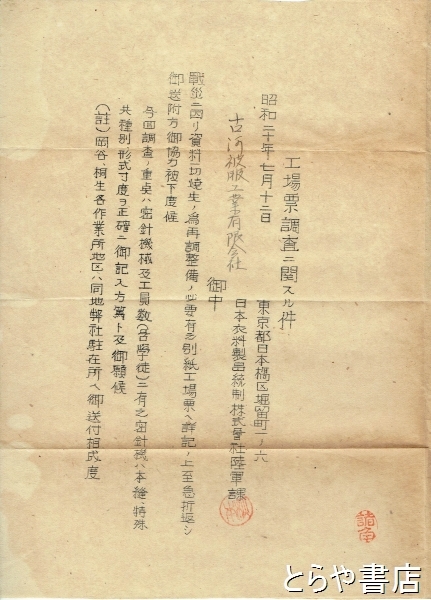 工場票調査ニ関スル件
昭和二十年七月十二日
東京都日本橋区堀留町一ノ六
日本衣料製品統制株式會社陸軍課
古河被服工業有限会社
御中
戦災ニ因リ資料一切焼失ノ為再調整備ノ必要有之別紙工場票ヘ詳記ノ上至急折返シ
御送附方御協力被下度候
今回調査ノ重点ハ密針機械及工員数(含学徒)ニ有之密針機ハ本縫、特殊
共種別形式寸度ヲ正確ニ御記入方篤ト及御願候
(註)岡谷、桐生各作業所地区ハ同地弊社駐在所ヘ御送付相成度
とらや書店